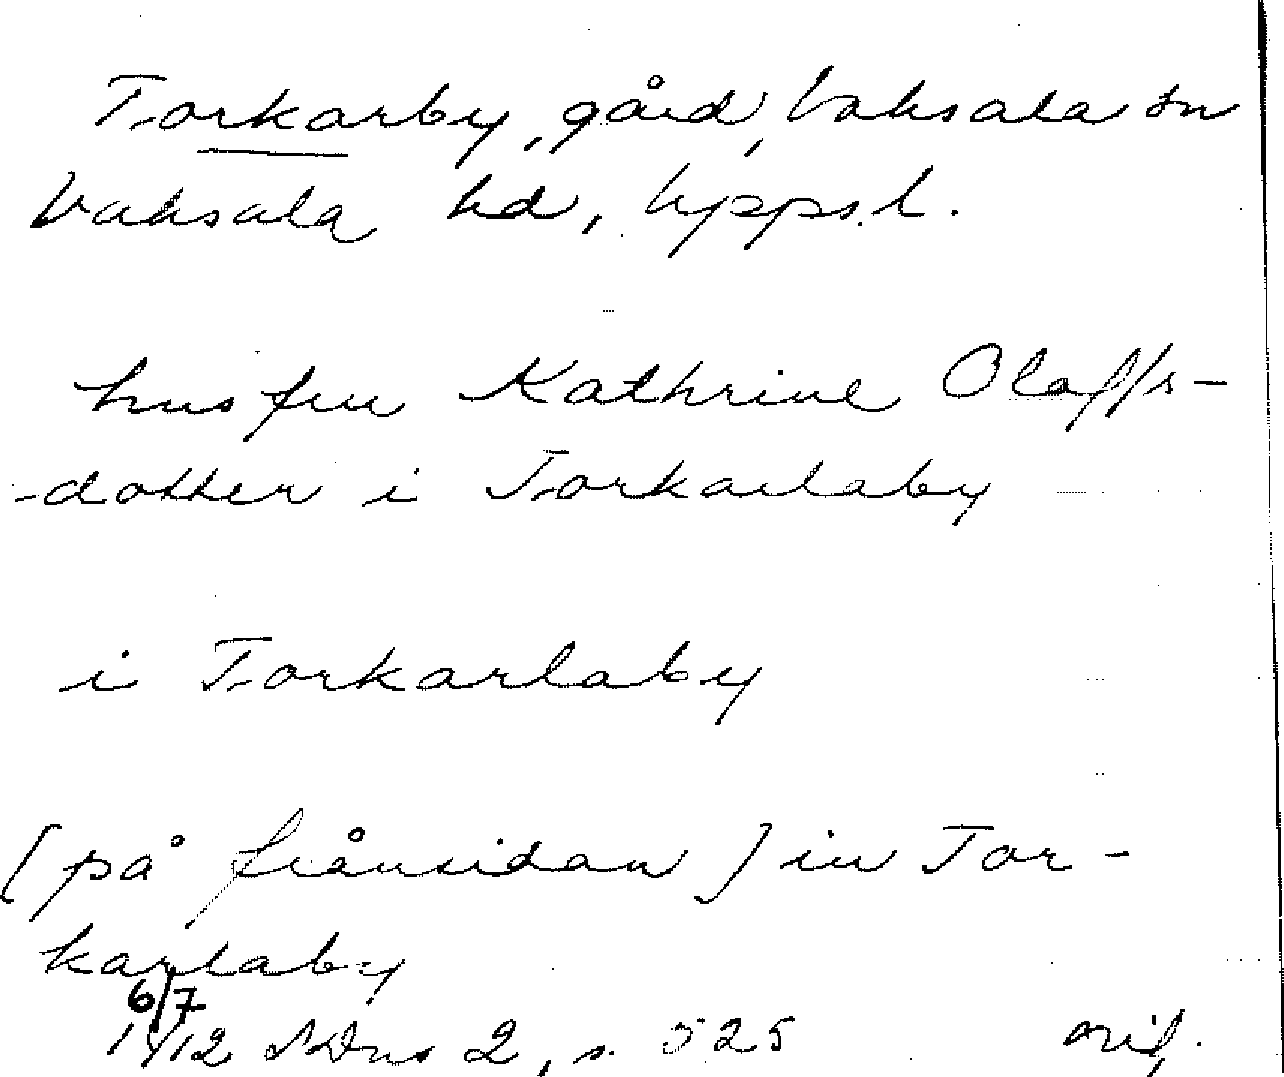 Torkarby, gård, Vaksala sn
Vaksala hd, Upps. l.
husfru Kathrine Olaffs-
-dotter i Torkarlaby
i Torkarlaby
[på frånsidan] in Tor-
karlaby
6/7
1412 SDns 2, s. 525 orig.